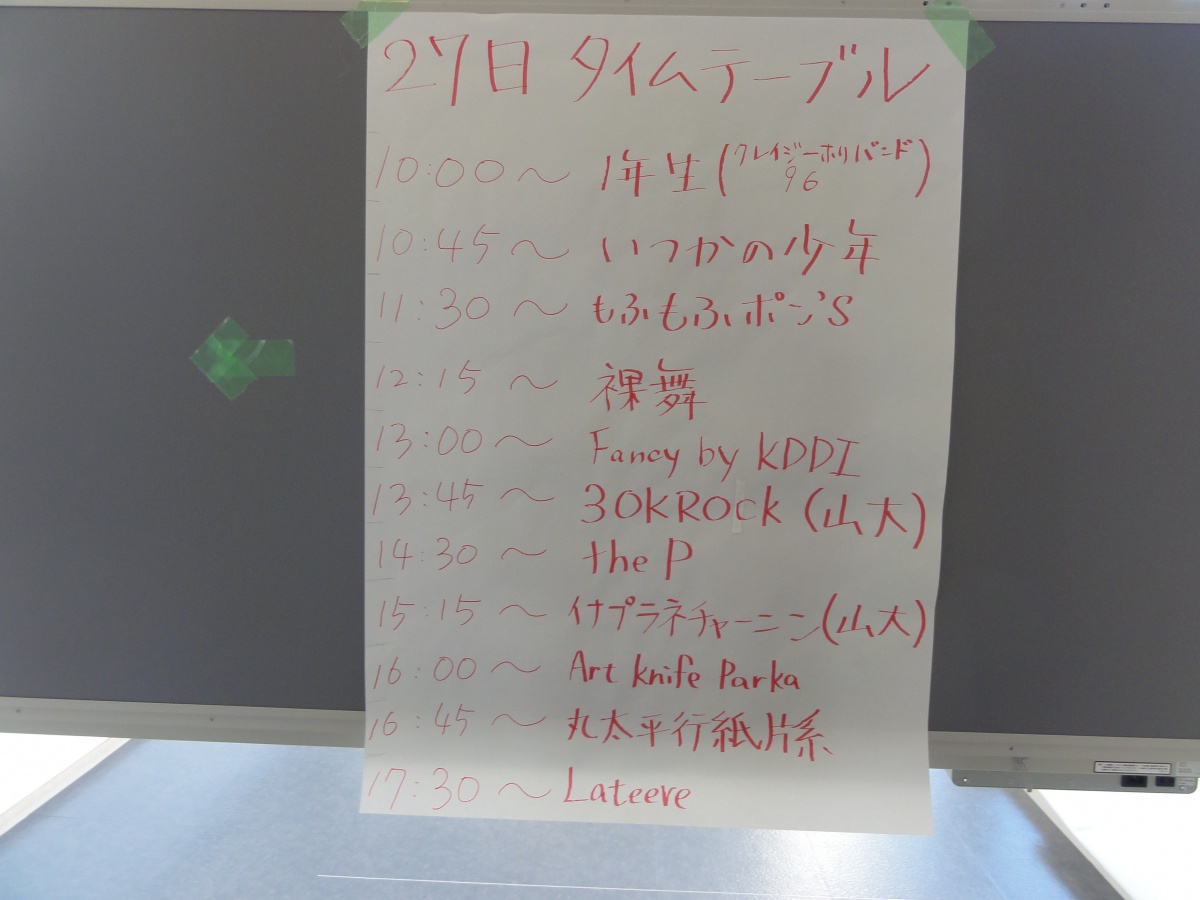 27日 タイムテーブル
10:00～ 1年生(クレイジーホリバンド
96)
10:45～ いつかの少年
11:30～ もふもふポン'S
12:15～ 裸舞
13:00～ Fancy by KDDI
13:45～ 30KROck (山大)
14:30～ the P
15:15～ イナプラネチャーニン(山大)
16:00～ Art knife Parka
16:45～ 丸太平行紙片系
17:30～ Lateeve